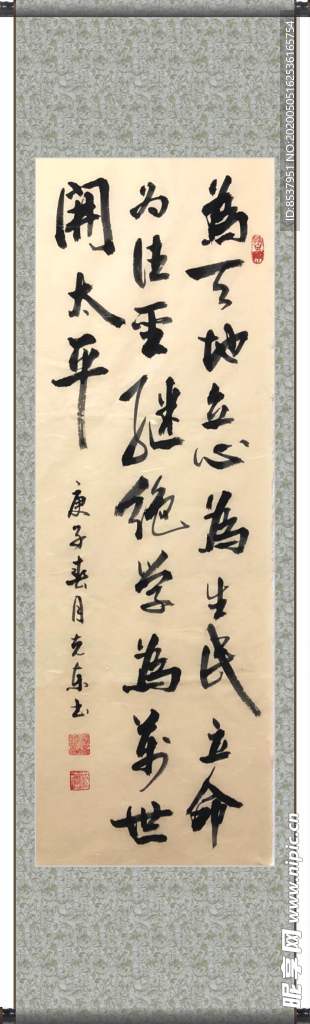 為天地立心為生民立命
为往聖继絶学為萬世
開太平
庚子春月克东书
ID:8537951 NO:20200505162536165754
昵享网 www.nipic.cn